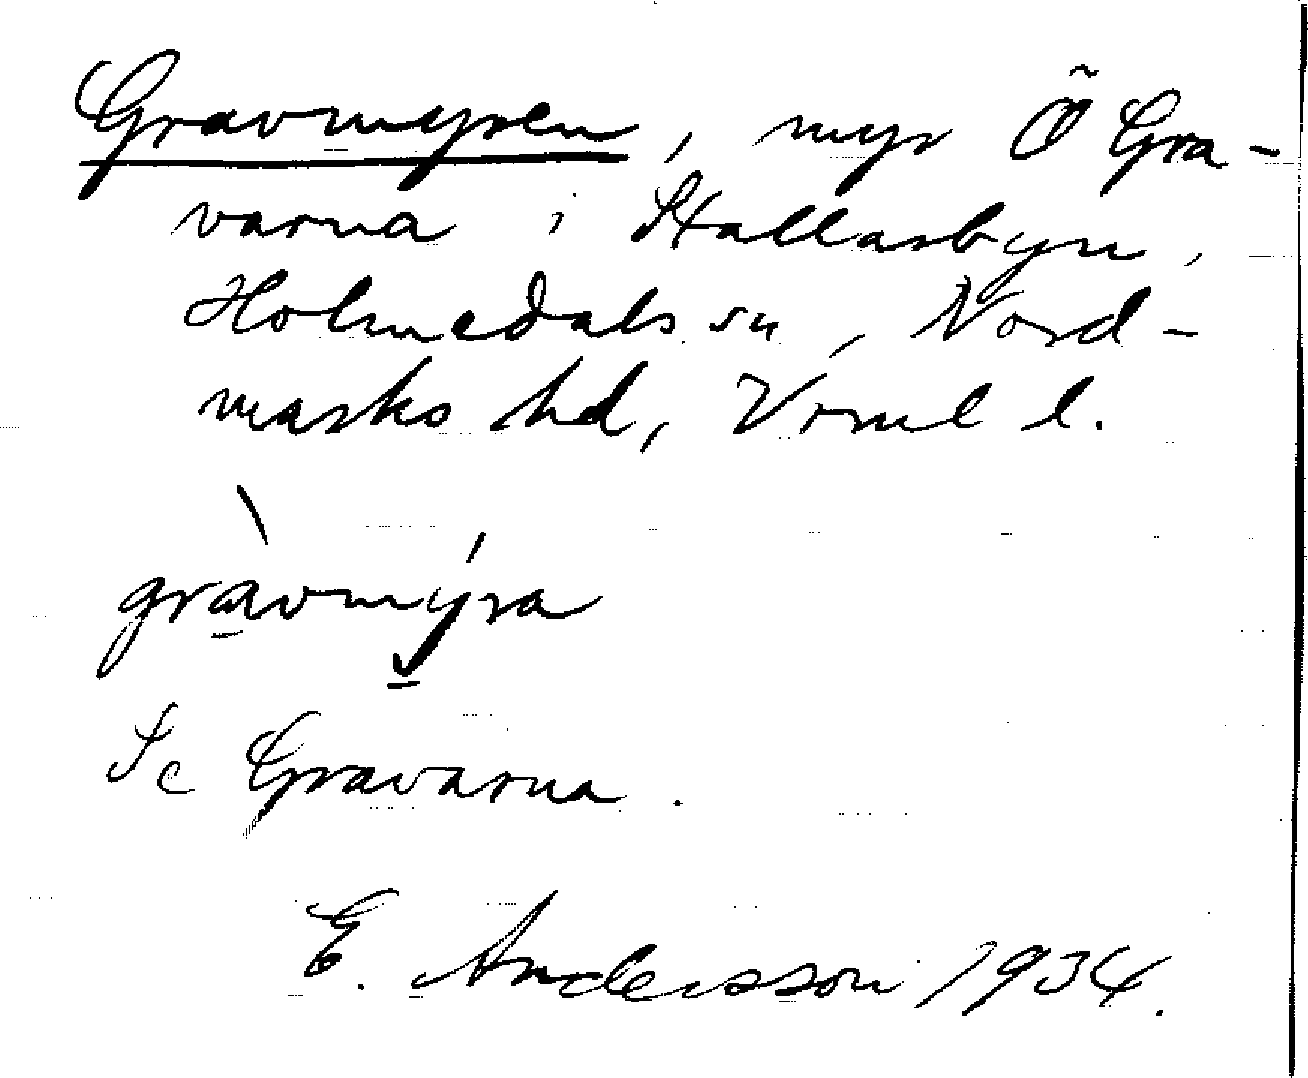 Gravmyren, myr Ö Gra-
varna i Stallarbyn,
Holmedals sn, Nord-
marks hd, Vrml l.
gràvmýra
Se Gravarna.
E. Andersson 1934.